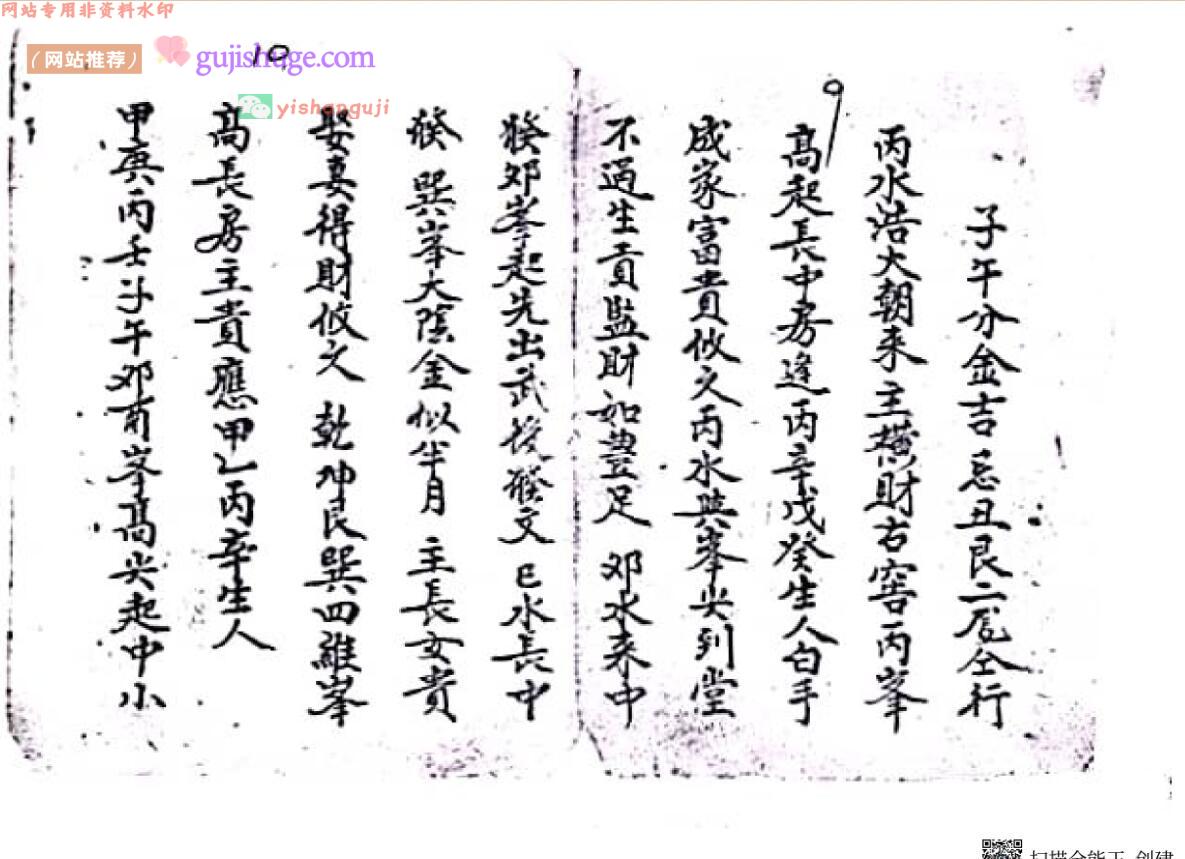 网站专用非资料水印
（网站推荐） gujishuge.com
yishanguji
9
子午分金吉忌丑艮二 仝行
丙水浩大朝来主横財右窖丙峯
高起長中房逢丙辛戊癸生人白手
成家富貴攸久丙水與峯尖到堂
不過生貢監財如豊足 邓水来中
10
發邓峯起先出武後發文 巳水長中
發 巽峯大陰金似半月 主長女貴
娶妻得財攸文 乾坤艮巽四維峯
高長房主貴應甲乙丙辛生人
甲庚丙壬子午邓酉峯高尖起中小
扫描全能王 创建